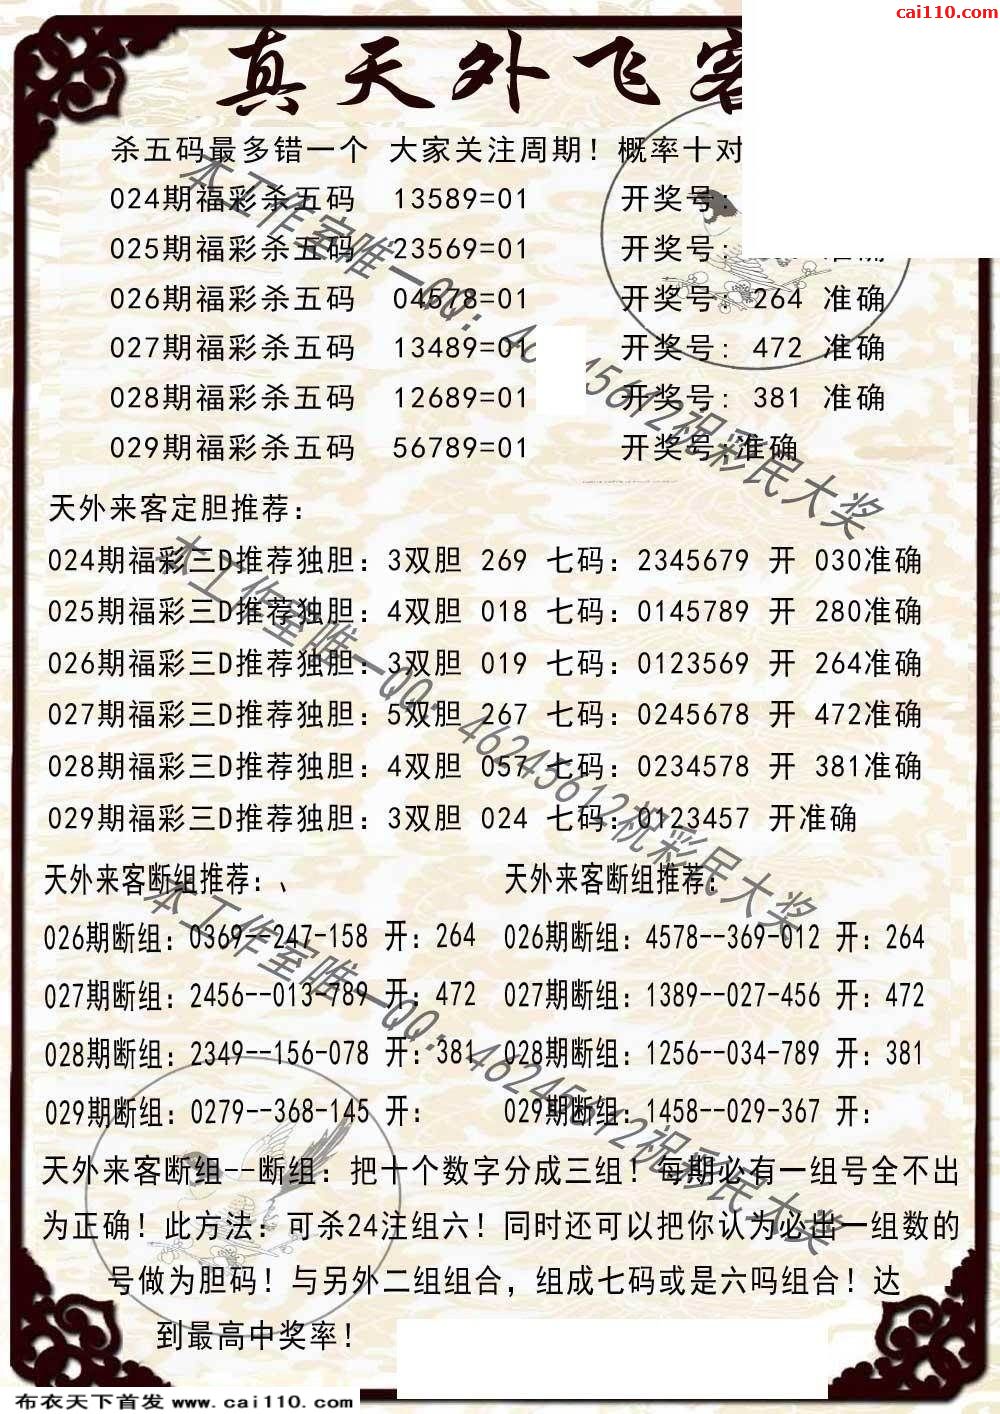 cai110.com
真天外飞客
杀五码最多错一个 大家关注周期！概率十对
024期福彩杀五码 13589=01 开奖号:
025期福彩杀五码 23569=01 开奖号: 准确
026期福彩杀五码 04578=01 开奖号: 264 准确
027期福彩杀五码 13489=01 开奖号: 472 准确
028期福彩杀五码 12689=01 开奖号: 381 准确
029期福彩杀五码 56789=01 开奖号:准确
天外来客定胆推荐：
024期福彩三D推荐独胆：3双胆 269 七码：2345679 开 030准确
025期福彩三D推荐独胆：4双胆 018 七码：0145789 开 280准确
026期福彩三D推荐独胆：3双胆 019 七码：0123569 开 264准确
027期福彩三D推荐独胆：5双胆 267 七码：0245678 开 472准确
028期福彩三D推荐独胆：4双胆 057 七码：0234578 开 381准确
029期福彩三D推荐独胆：3双胆 024 七码：0123457 开准确
天外来客断组推荐：、 天外来客断组推荐：
026期断组：0369--247-158 开：264 026期断组：4578--369-012 开：264
027期断组：2456--013-789 开：472 027期断组：1389--027-456 开：472
028期断组：2349--156-078 开：381 028期断组：1256--034-789 开：381
029期断组：0279--368-145 开： 029期断组：1458--029-367 开：
天外来客断组--断组：把十个数字分成三组！每期必有一组号全不出
为正确！此方法：可杀24注组六！同时还可以把你认为必出一组数的
号做为胆码！与另外二组组合，组成七码或是六吗组合！达
到最高中奖率！
本工作室唯一QQ：46245612祝彩民大奖
本工作室唯一QQ：46245612祝彩民大奖
本工作室唯一QQ：46245612祝彩民大奖
布衣天下首发 www.cai110.com